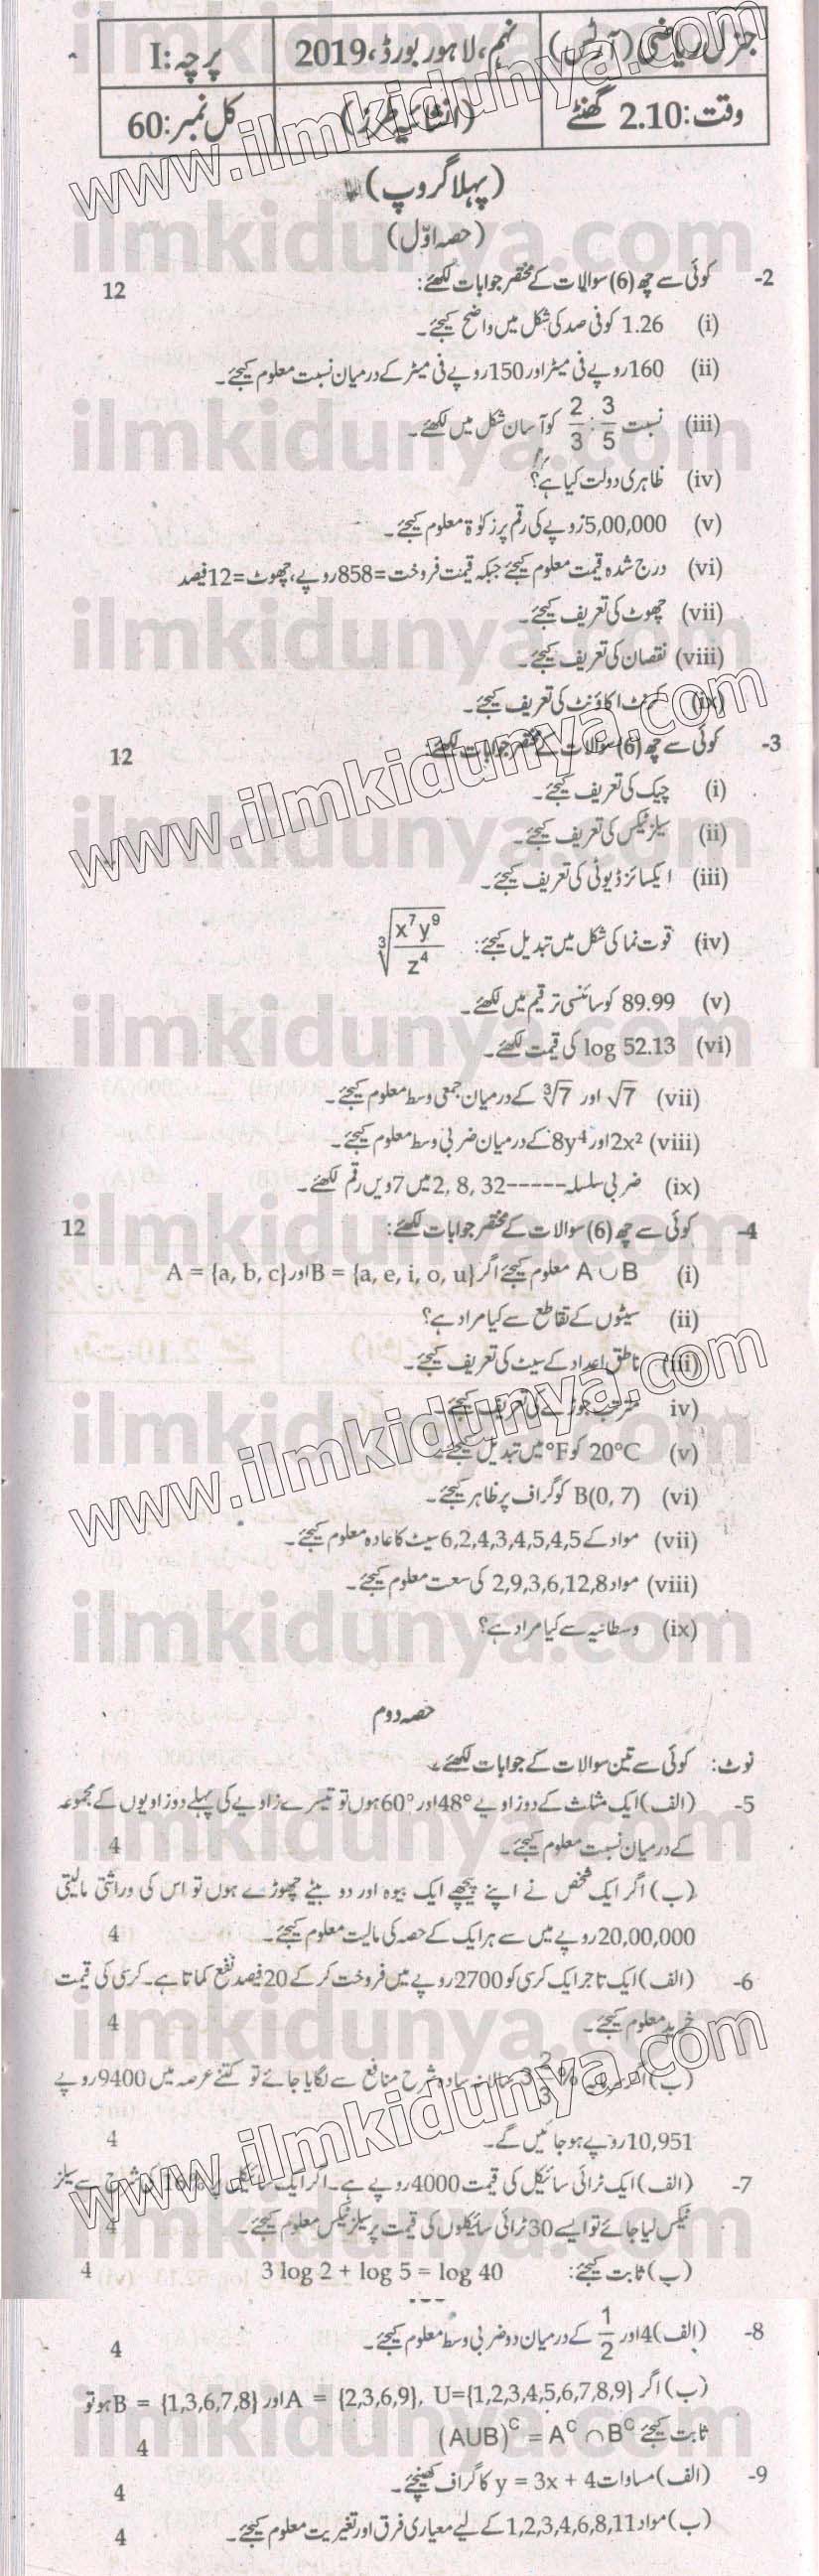 جنرل ریاضی (آرٹس) نہم، لاہور بورڈ، 2019 پرچہ: I
وقت: 2.10 گھنٹے (انشائیہ طرز) کل نمبر: 60
(پہلا گروپ)
(حصہ اوّل)
2- کوئی سے چھ (6) سوالات کے مختصر جوابات لکھئے: 12
(i) 1.26 کو فی صد کی شکل میں واضح کیجئے۔
(ii) 160 روپے فی میٹر اور 150 روپے فی میٹر کے درمیان نسبت معلوم کیجئے۔
(iii) نسبت 3/5 : 2/3 کو آسان شکل میں لکھئے۔
(iv) ظاہری دولت کیا ہے؟
(v) 5,00,000 روپے کی رقم پر زکوٰۃ معلوم کیجئے۔
(vi) درج شدہ قیمت معلوم کیجئے جبکہ قیمت فروخت = 858 روپے، چھوٹ = 12 فیصد
(vii) چھوٹ کی تعریف کیجئے۔
(viii) نقصان کی تعریف کیجئے۔
(ix) کرنٹ اکاؤنٹ کی تعریف کیجئے۔
3- کوئی سے چھ (6) سوالات کے مختصر جوابات لکھئے: 12
(i) چیک کی تعریف کیجئے۔
(ii) سیلز ٹیکس کی تعریف کیجئے۔
(iii) ایکسائز ڈیوٹی کی تعریف کیجئے۔
(iv) قوت نما کی شکل میں تبدیل کیجئے: ∛(x⁷y⁹/z⁴)
(v) 89.99 کو سائنسی ترقیم میں لکھئے۔
(vi) log 52.13 کی قیمت لکھئے۔
(vii) √7 اور ∛7 کے درمیان جمعی وسط معلوم کیجئے۔
(viii) 2x² اور 8y⁴ کے درمیان ضربی وسط معلوم کیجئے۔
(ix) ضربی سلسلہ -----2, 8, 32 میں 7 ویں رقم لکھئے۔
4- کوئی سے چھ (6) سوالات کے مختصر جوابات لکھئے: 12
(i) A∪B معلوم کیجئے اگر B = {a, e, i, o, u} اور A = {a, b, c}
(ii) سیٹوں کے تقاطع سے کیا مراد ہے؟
(iii) ناطق اعداد کے سیٹ کی تعریف کیجئے۔
iv) مترتب جوڑے کی تعریف کیجئے۔
(v) 20°C کو °F میں تبدیل کیجئے۔
(vi) B(0, 7) کو گراف پر ظاہر کیجئے۔
(vii) مواد کے 6,2,4,3,4,5,4,5 سیٹ کا عادہ معلوم کیجئے۔
(viii) مواد 2,9,3,6,12,8 کی سعت معلوم کیجئے۔
(ix) وسطانیہ سے کیا مراد ہے؟
حصہ دوم
نوٹ: کوئی سے تین سوالات کے جوابات لکھئے۔
5- (الف) ایک مثلث کے دو زاویے 48° اور 60° ہوں تو تیسرے زاویے کی پہلے دو زاویوں کے مجموعہ
کے درمیان نسبت معلوم کیجئے۔ 4
(ب) اگر ایک شخص نے اپنے پیچھے ایک بیوہ اور دو بیٹے چھوڑے ہوں تو اس کی وراثتی مالیتی
20,00,000 روپے میں سے ہر ایک کے حصہ کی مالیت معلوم کیجئے۔ 4
6- (الف) ایک تاجر ایک کرسی کو 2700 روپے میں فروخت کر کے 20 فیصد نفع کماتا ہے۔ کرسی کی قیمت
خرید معلوم کیجئے۔ 4
(ب) اگر سرمایہ 3 2/3 % سالانہ سادہ شرح منافع سے لگایا جائے تو کتنے عرصہ میں 9400 روپے
10,951 روپے ہو جائیں گے۔ 4
7- (الف) ایک ٹرائی سائیکل کی قیمت 4000 روپے ہے۔ اگر ایک سائیکل پر 16% کی شرح سے سیلز
ٹیکس لیا جائے تو ایسے 30 ٹرائی سائیکلوں کی قیمت پر سیلز ٹیکس معلوم کیجئے۔ 4
(ب) ثابت کیجئے: 3 log 2 + log 5 = log 40 4
8- (الف) 4 اور 1/2 کے درمیان دو ضربی وسط معلوم کیجئے۔ 4
(ب) اگر U={1,2,3,4,5,6,7,8,9}, A = {2,3,6,9} اور B = {1,3,6,7,8} ہو تو
ثابت کیجئے (AUB)ᶜ = Aᶜ ∩ Bᶜ 4
9- (الف) مساوات y = 3x + 4 کا گراف کھینچئے۔ 4
(ب) مواد 1,2,3,4,6,8,11 کے لیے معیاری فرق اور تغیریت معلوم کیجئے۔ 4
www.ilmkidunya.com
ilmkidunya.com